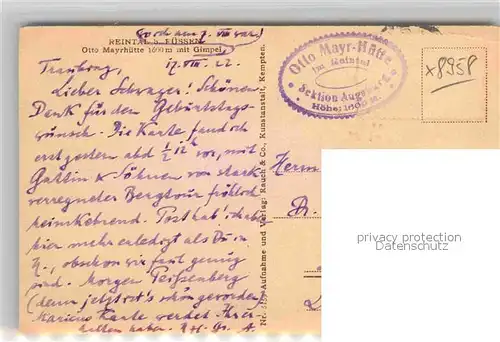 REINTAL B. FÜSSEN
Otto Mayrhütte 1600 m mit Gimpel.
17. VIII. 22.
Lieber Schwager! Schönen
Dank für den Geburtstags-
wünsche. Die Karte fand ich
erst gestern abd ½ 12 h vor, mit
Gattin & Söhnen von stark
verregneter Bergtour fröhlich
heimkehrend. Post hab' ich
hier mehr erledigt als Du in
obschon wir fast genug
sind. Morgen Peißenberg
(denn jetzt ist's schön geworden
Karte werdet Ihr
erhalten haben.
Otto Mayr-Hütte
im Reintal
Sektion Augsburg
Höhe: 1600 M.
x8958
Nr. Aufnahme und Verlag: Rauch & Co., Kunstanstalt, Kempten.
Herrn
Dr.
privacy protection
Datenschutz